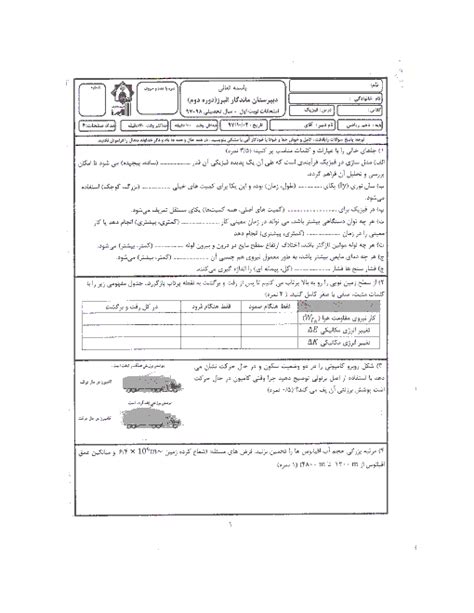 باسمه تعالی
نام:
نام خانوادگی:
دبیرستان ماندگار البرز(دوره دوم)
امتحانات نوبت اول - سال تحصیلی ۹۸-۹۷
درس: فیزیک
نام دبیر: آقای
تاریخ: ۹۷/۱۰/۰۳
تعداد صفحات: ۴
۱) جاهای خالی را با عبارات و کلمات مناسب پر کنید: (۳/۵ نمره)
الف) مدل سازی در فیزیک فرآیندی است که طی آن یک پدیده فیزیکی آن قدر ............ (ساده، پیچیده) می شود تا امکان
بررسی و تحلیل آن فراهم گردد.
ب) سال نوری (ly) یکای ............ (طول، زمان) بوده و این یکا برای کمیت های خیلی ............ (بزرگ، کوچک) استفاده
می‌شود.
پ) در فیزیک برای ............ (کمیت های اصلی، همه کمیت‌ها) یکای مستقل تعریف می‌شود.
ت) هر چه توان دستگاهی بیشتر باشد، می‌تواند در مدت زمان معینی کار ............ (کمتری، بیشتری) انجام دهد یا کار
معینی را در زمان ............ (کمتری، بیشتری) انجام دهد
ث) هر چه لوله مویین نازکتر باشد، اختلاف ارتفاع سطح مایع در درون و بیرون لوله ............ (کمتر، بیشتر) می‌شود.
ج) هر چه دمای مایعی بیشتر باشد، به طور معمول نیروی هم چسبی آن ............ (کمتر، بیشتر) می‌شود.
چ) فشار سنج ها فشار ............ (کل، پیمانه ای) را اندازه گیری می‌کنند.
۲) از سطح زمین توپی را رو به بالا پرتاب می کنیم تا پس از رفت و برگشت به نقطه پرتاب بازگردد. جدول مفهومی زیر را با
کلمات مثبت، منفی یا صفر کامل کنید. (۲ نمره)
فقط هنگام صعود
فقط هنگام فرود
در کل رفت و برگشت
کار نیروی مقاومت هوا
تغییر انرژی مکانیکی ΔE
تغییر انرژی ΔK
۳) شکل روبرو کامیونی را در دو وضعیت سکون و در حال حرکت نشان می
دهد با استفاده از اصل برنولی توضیح دهید چرا وقتی کامیون در حال حرکت
است پوشش برزنتی آن پف می کند؟ (۰/۵ نمره)
۴) مرتبه بزرگی حجم آب اقیانوس ها را تخمین بزنید. فرض های مسئله: (شعاع کره زمین ۶٫۴ × 10⁶m~ و میانگین عمق